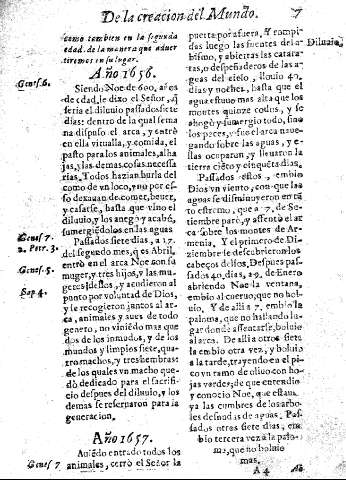 De la creacion del Mundo. 7
como tambien en la segunda
edad. de la manera que adver
tiremos en su lugar.
Año 1656.
Genes. 6.
Siendo Noe de 600. años
de edad, le dixo el Señor, q̃
seria el diluuio passados siete
dias: dentro de la qual sema
na dispuso el arca, y entrò
en ella vitualla, y comida, el
pasto para los animales, alha
jas, y las demas cosas necessa
rias. Todos hazian burla del
como de vn loco, y no por es-
so dexauan de comer, beuer,
y casarse, hasta que vino el
diluuio, y los anegò y acabò,
sumergiendolos en las aguas
Genes. 7.
2. Petr. 3.
Genes. 5.
Sap. 4.
Passados siete dias, a 17.
del segundo mes, q̃ es Abril,
entrò en el arca Noe con su
muger, y tres hijos, y las mu-
geres dellos, y acudieron al
punto por voluntad de Dios,
y se recogieron juntos al ar-
ca, animales y aues de todo
genero, no viniẽdo mas que
dos de los inmundos, y de los
mundos y limpios siete, qua-
tro machos, y tres hembras:
de los quales vn macho que-
dò dedicado para el sacrifi-
cio despues del diluuio, y los
demas se reseruaron para la
generacion.
Año 1657.
Genes 7
Auiẽdo entrado todos los
animales, cerrò el Señor la
puerta por afuera. Y rompi-
das luego las fuentes del a-
Diluuio.
bismo, y abiertas las catara-
tas, o despeñaderos de las a-
guas del cielo, llouio 40.
dias y noches, hasta que el
agua estuuo mas alta que los
montes quinze codos, y se
ahogò y sumergio todo, sino
los peces, y fue el arca naue-
gando sobre las aguas, y e-
llas ocuparon, y lleuaron la
tierra ciẽto y cinquẽta dias.
Passados estos, embio
Dios vn viento, con que las
aguas se disminuyeron en tã
to estremo, que a 27. de Se-
tiembre parò, y assentò el ar
ca sobre los montes de Ar-
menia, Y el primero de Di-
ziembre se descubrieron los
cabeços dellos. Despues pas-
sados 40. dias, a 9. de Enero
abriendo Noe la ventana,
embio al cueruo, que no bol-
uio, Y de alli a 7. embio la
paloma, que no hallando lu-
gar donde assentarse, boluio
al arca. De alli a otros siete
la embio otra vez, y boluio
a la tarde, trayendo en el pi-
co vn ramo de oliuo con ho-
jas verdes; de que entendio
y conocio Noe, que estauã
ya las cumbres de los arbo-
les desnudas de aguas. Pas-
sados otros siete dias, em-
bio tercera vez a la palo-
ma, que no boluio
mas.
A 4